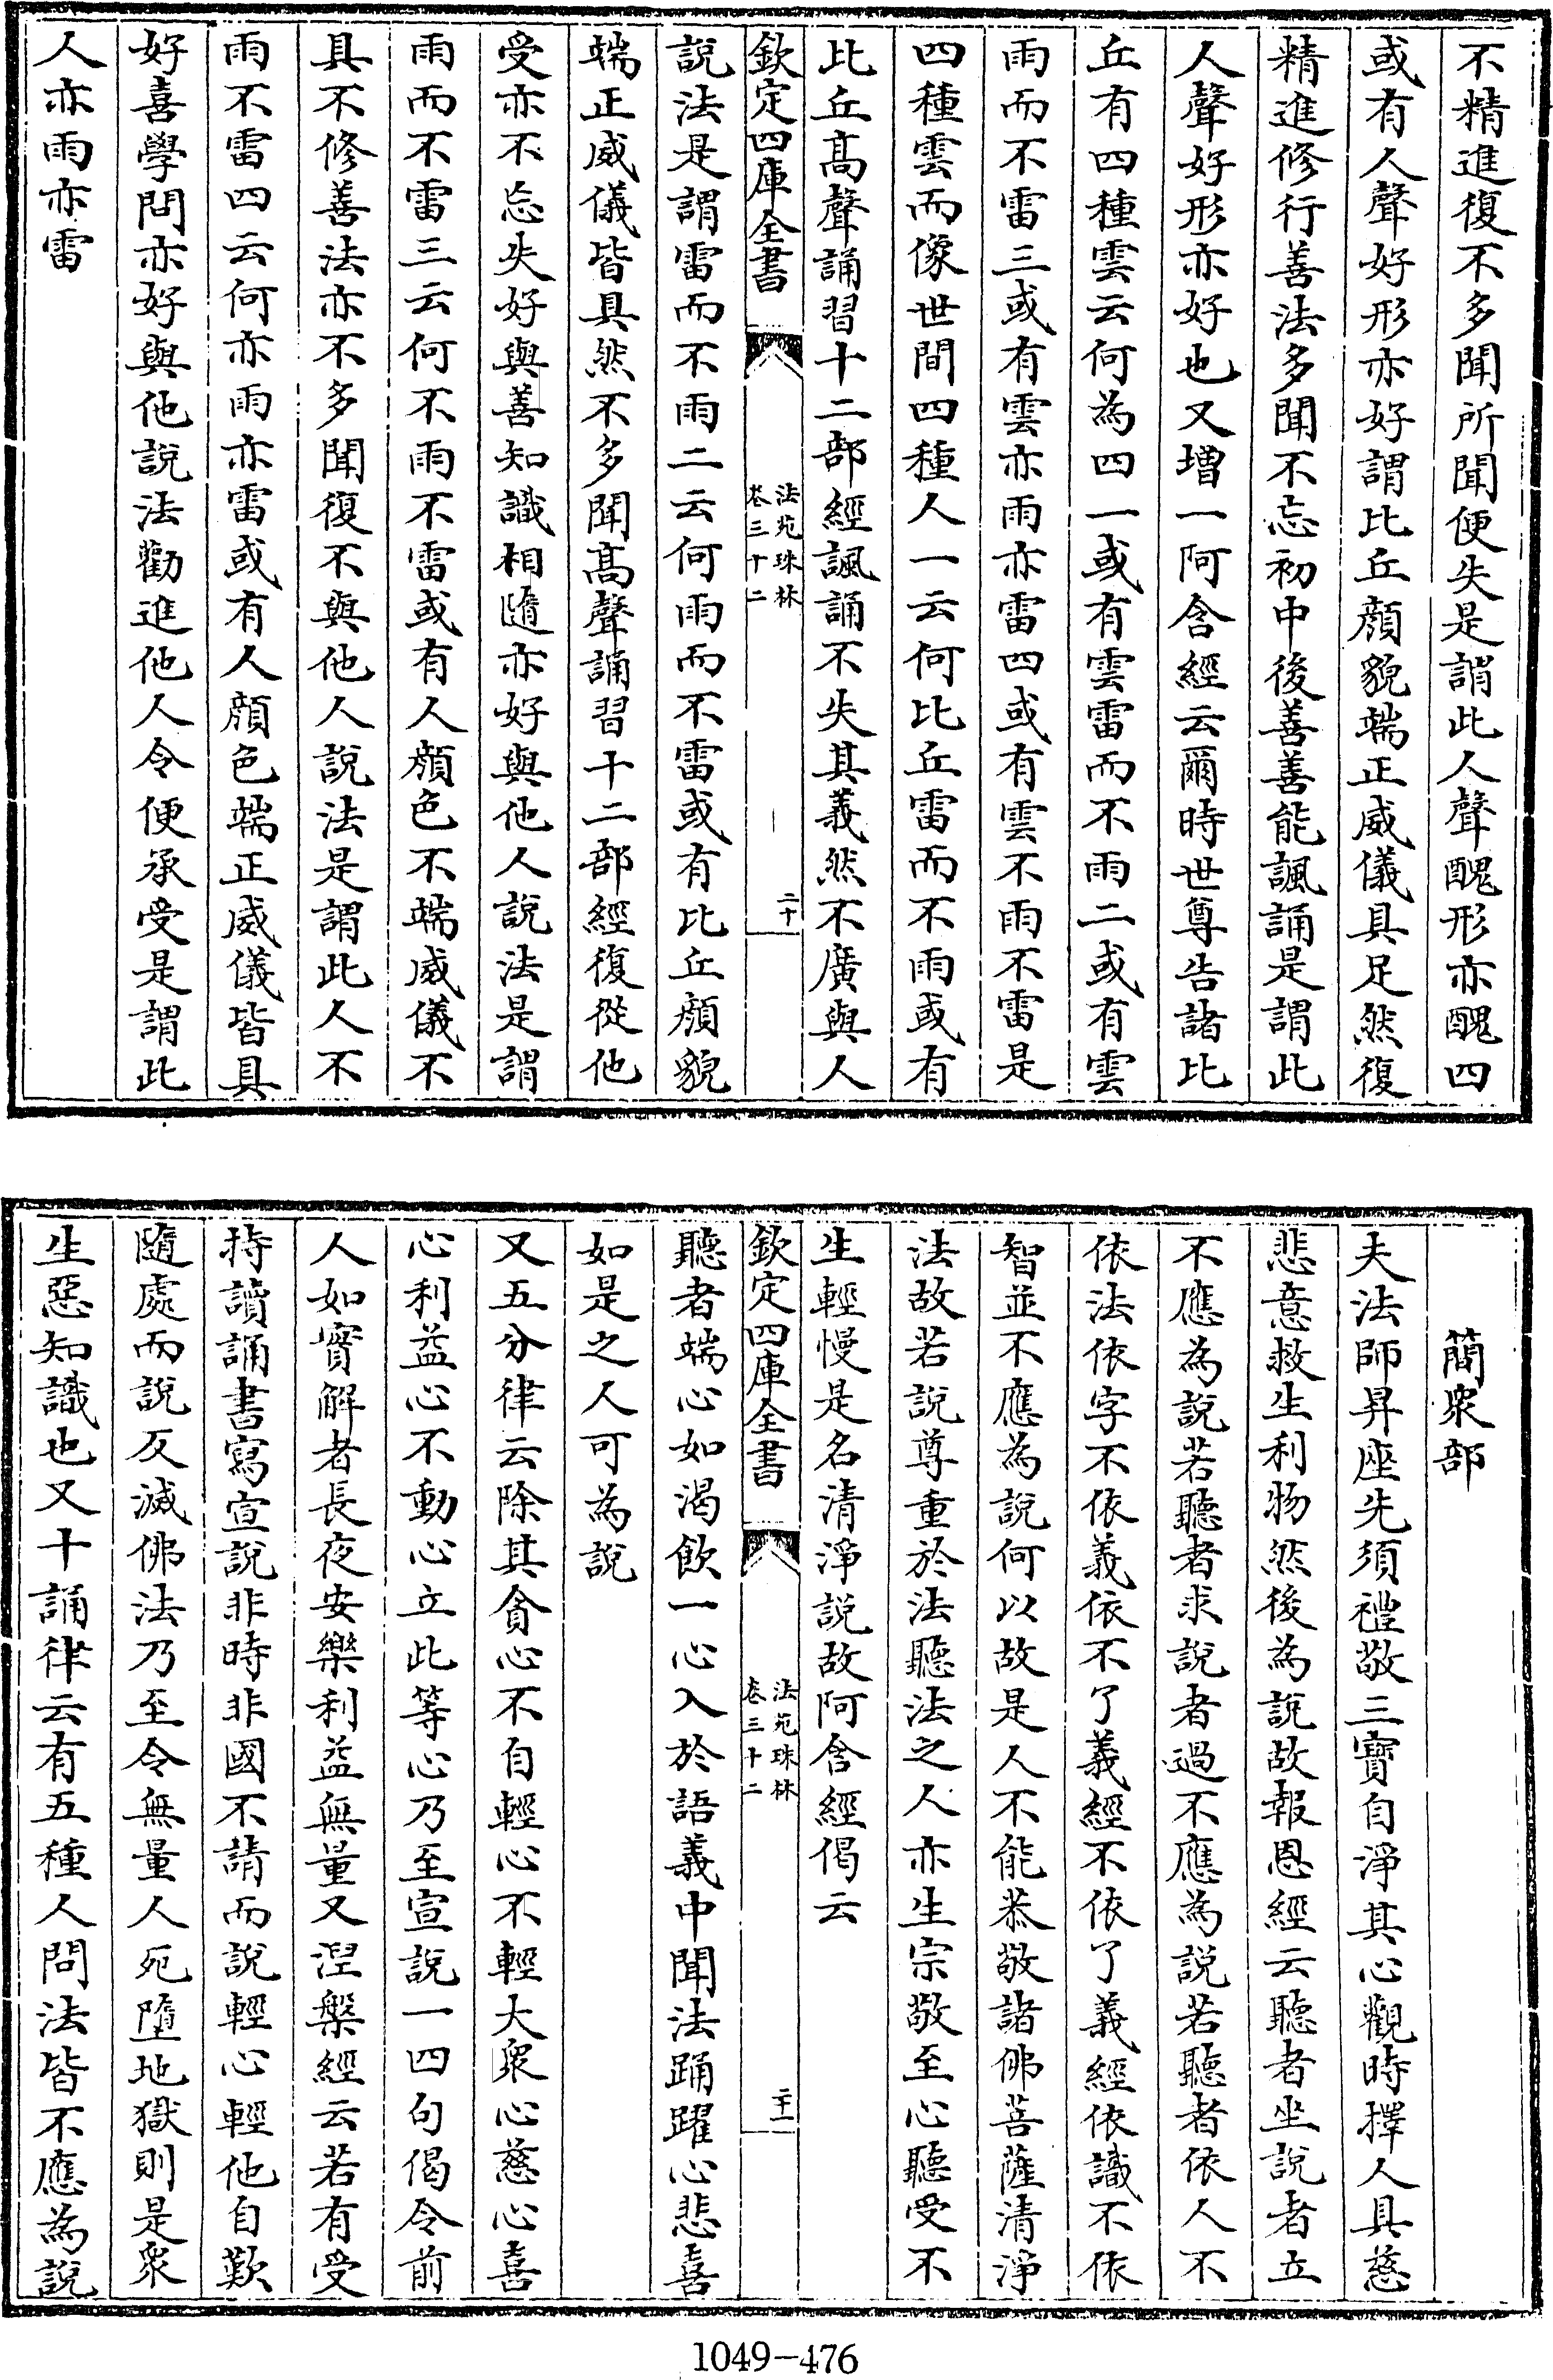 不精進復不多聞所聞便失是謂此人聲醜形亦醜四
或有人聲好形亦好謂比丘顏貌端正威儀具足然復
精進修行善法多聞不忘初中後善善能諷誦是謂此
人聲好形亦好也又增一阿含經云爾時世尊告諸比
丘有四種雲云何為四一或有雲雷而不雨二或有雲
雨而不雷三或有雲亦雨亦雷四或有雲不雨不雷是
四種雲而像世間四種人一云何比丘雷而不雨或有
比丘高聲誦習十二部經諷誦不失其義然不廣與人
欽定四庫全書
法苑珠林
卷三十二
二十
說法是謂雷而不雨二云何雨而不雷或有比丘顏貌
端正威儀皆具然不多聞高聲誦習十二部經復從他
受亦不忘失好與善知識相隨亦好與他人說法是謂
雨而不雷三云何不雨不雷或有人顏色不端威儀不
具不修善法亦不多聞復不與他人說法是謂此人不
雨不雷四云何亦雨亦雷或有人顏色端正威儀皆具
好喜學問亦好與他說法勸進他人令便承受是謂此
人亦雨亦雷
簡衆部
夫法師昇座先須禮敬三寶自淨其心觀時擇人具慈
悲意救生利物然後為說故報恩經云聽者坐說者立
不應為說若聽者求說者過不應為說若聽者依人不
依法依字不依義依不了義經不依了義經依識不依
智並不應為說何以故是人不能恭敬諸佛菩薩清淨
法故若說尊重於法聽法之人亦生宗敬至心聽受不
生輕慢是名清淨說故阿含經偈云
欽定四庫全書
法苑珠林
卷三十二
二十一
聽者端心如渴飲一心入於語義中聞法踊躍心悲喜
如是之人可為說
又五分律云除其貪心不自輕心不輕大衆心慈心喜
心利益心不動心立此等心乃至宣說一四句偈令前
人如實解者長夜安樂利益無量又涅槃經云若有受
持讀誦書寫宣說非時非國不請而說輕心輕他自歎
隨處而說反滅佛法乃至令無量人死墮地獄則是衆
生惡知識也又十誦律云有五種人問法皆不應為說
1049-476